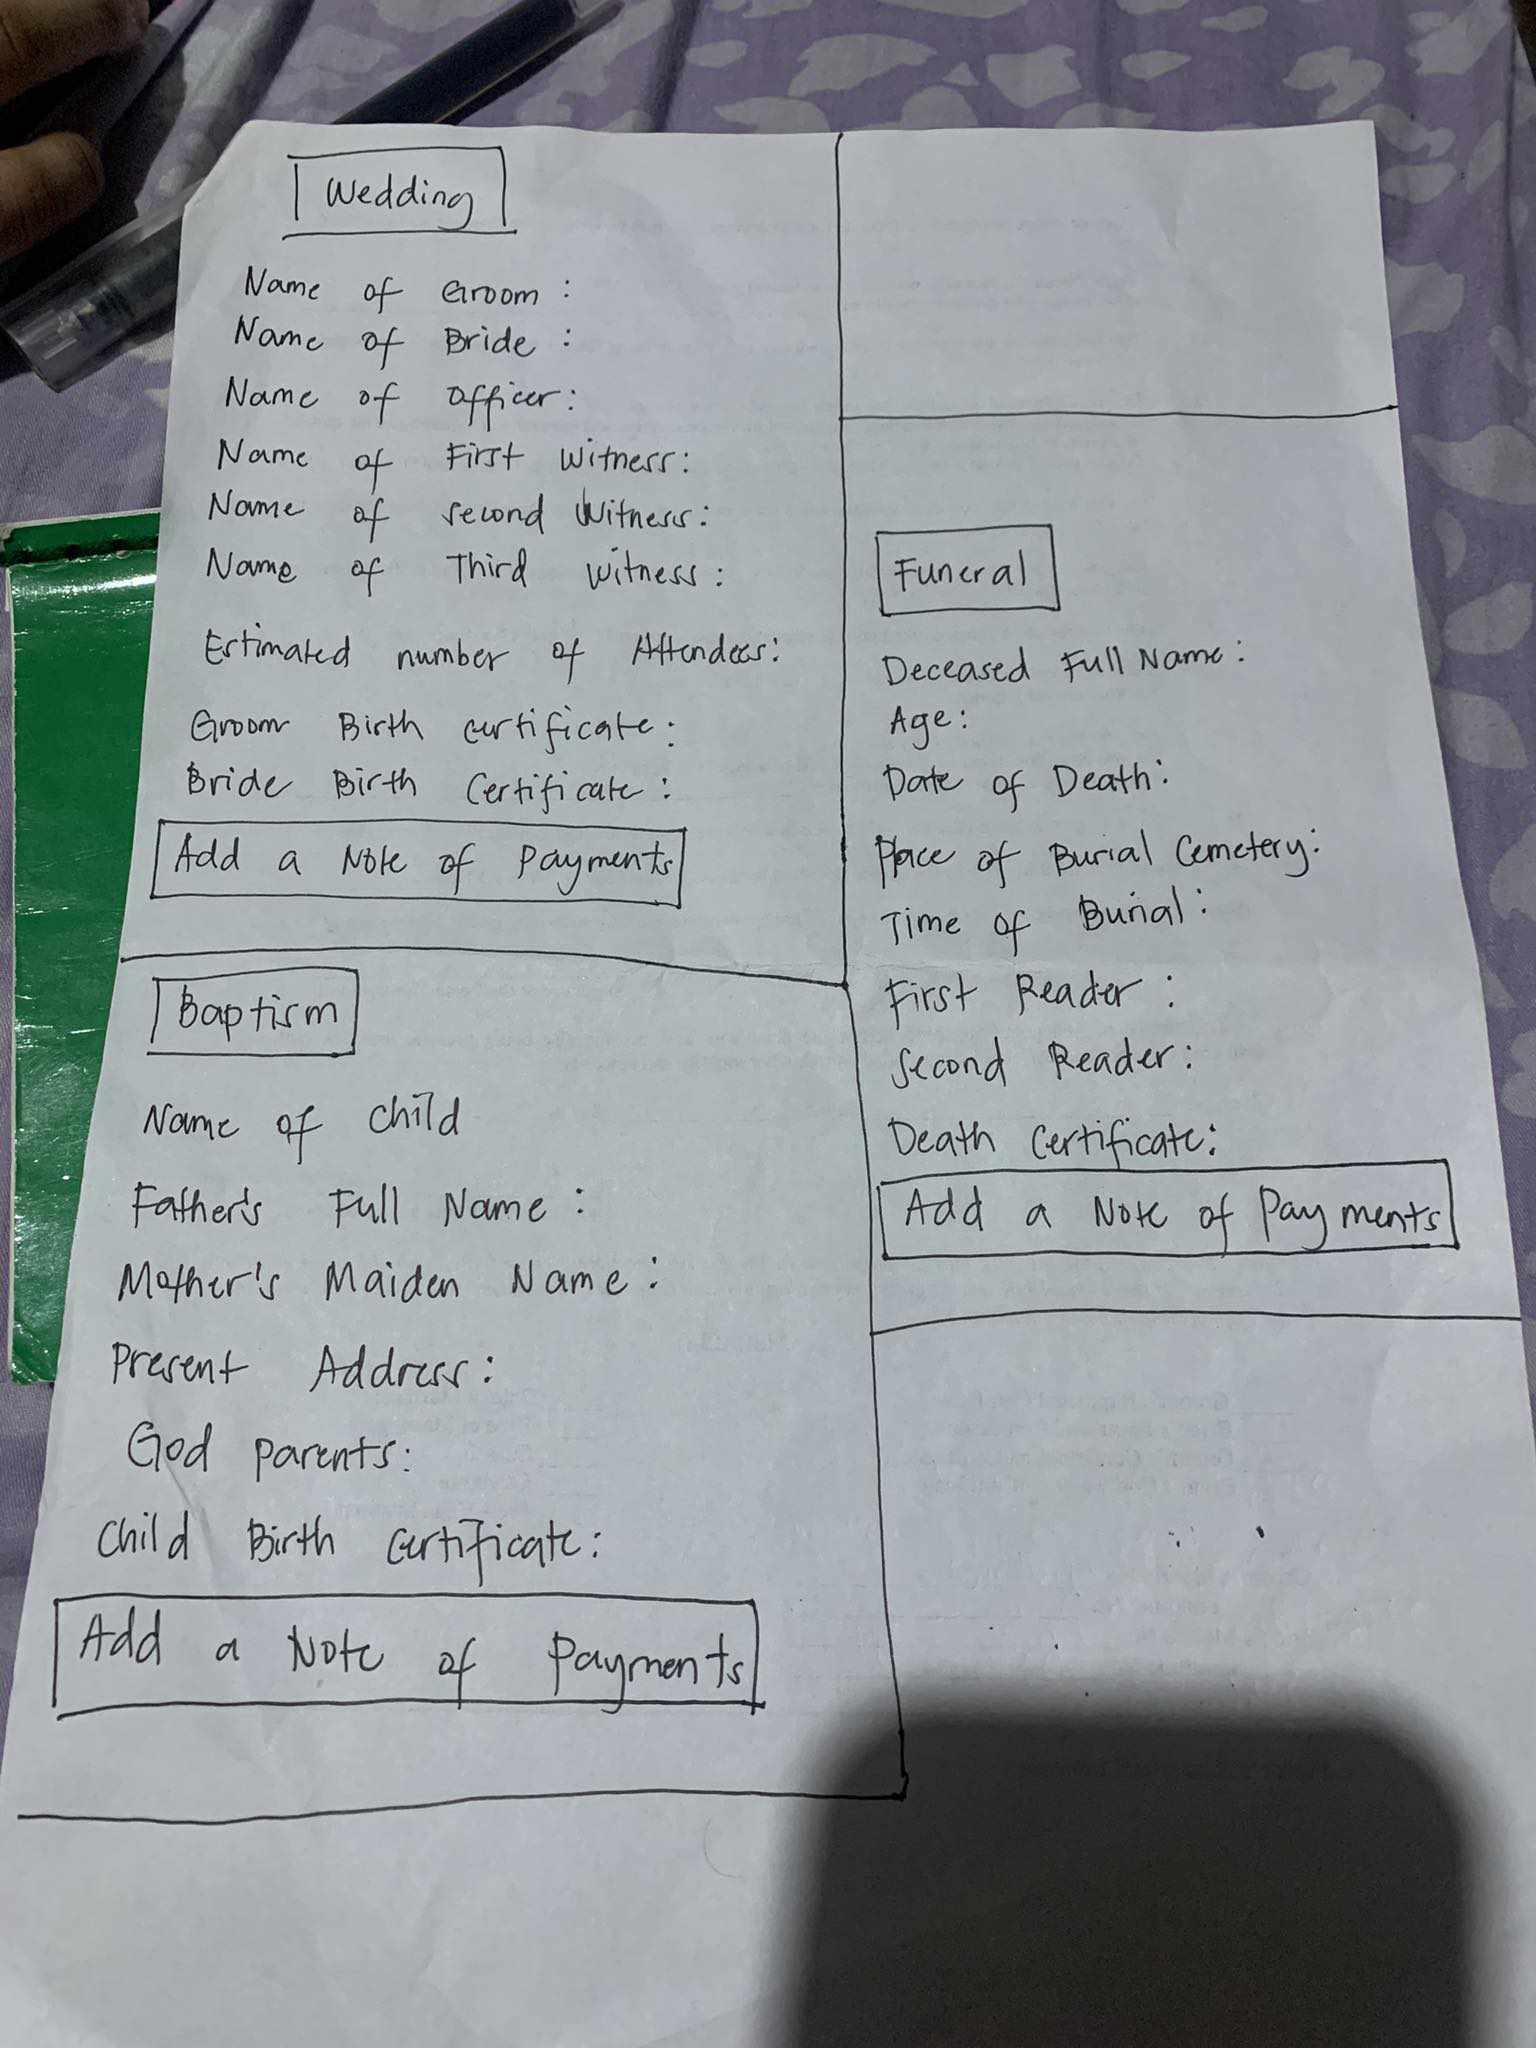 Wedding
Name of Groom:
Name of Bride:
Name of Officer:
Name of First Witness:
Name of Second Witness:
Name of Third Witness:
Estimated number of Attendees:
Groom Birth Certificate:
Bride Birth Certificate:
Add a Note of Payments
Baptism
Name of Child
Father's Full Name:
Mother's Maiden Name:
Present Address:
God Parents:
Child Birth Certificate:
Add a Note of Payments
Funeral
Deceased Full Name:
Age:
Date of Death:
Place of Burial Cemetery:
Time of Burial:
First Reader:
Second Reader:
Death Certificate:
Add a Note of Payments